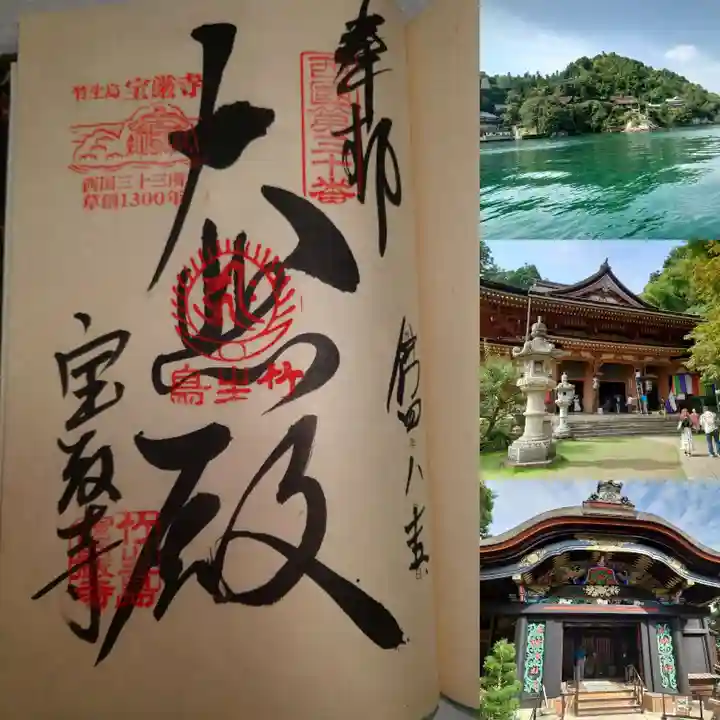 奉拝
西国第三十番
四年八
大悲殿
竹生島
竹生島 宝厳寺
西国三十三所
草創1300年
宝厳寺
竹生島
寶厳寺